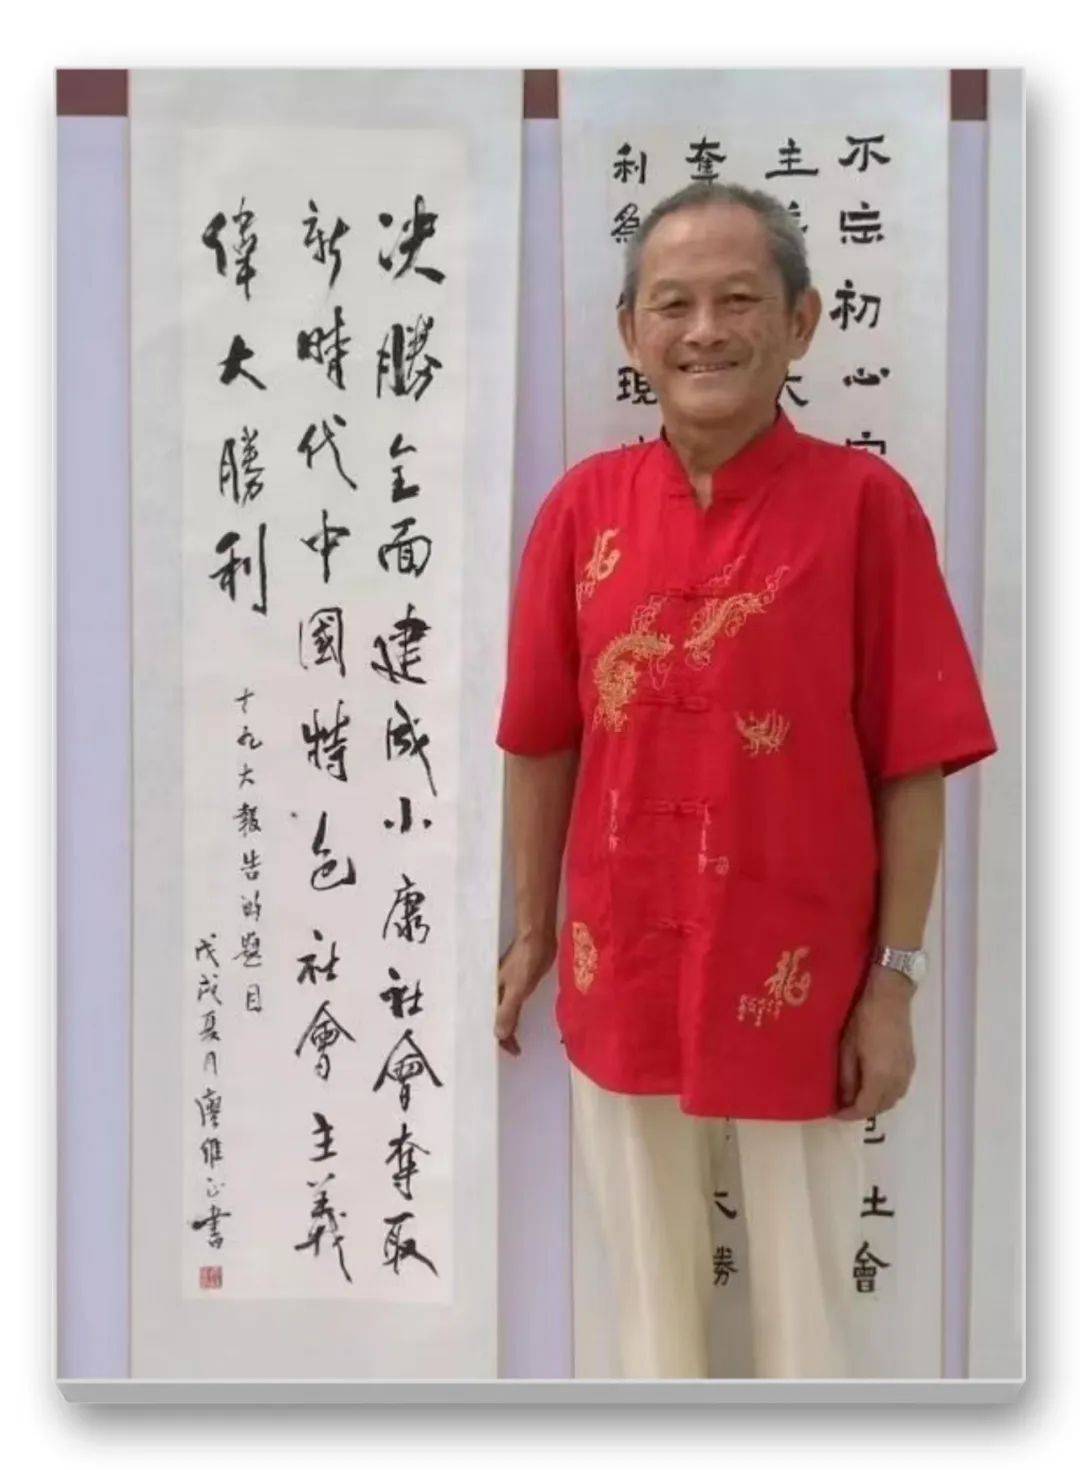 决勝全面建成小康社會奪取
新時代中國特色社會主義
偉大勝利
十九大報告的題目
戊戌夏月廖維正書
不忘初心
土會
主
大
奪
勝
利
現
龍
龍